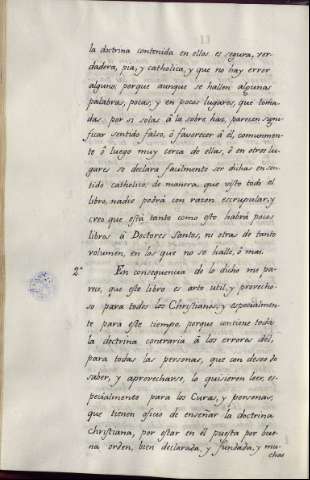 la doctrina contenida en ellos es segura, ver-
dadera, pia, y catholica, y que no hay error
alguno, porque aunque se hallen algunas
palabras, pocas, y en pocos lugares, que toma-
das por si solas â la sobre haz, parecen signi-
ficar sentido falso, ô favorecer â él, comunmen-
te ô luego muy cerca de ellas, ô en otros lu-
gares se declara facilmente ser dichas en sen-
tido catholico, de manera, que visto todo el
libro, nadie podrá con razon escrupular, y
creo que està tanto como esto habrá pocos
libros â Doctores Santos, ni otros de tanto
volumen, en los que no se halle, ô mai.
2.º En consequencia de lo dicho me pa-
rece, que este libro es arto util, y provecho-
so para todos los Christianos, y especialmen-
te para este tiempo, porque contiene toda
la doctrina contraria â los errores del,
para todas las personas, que con deseo de
saber, y aprovecharse, lo quisieren leer, es-
pecialmente para los Curas, y personas,
que tienen oficio de enseñar la doctrina
Christiana, por estar en él puesta por bue-
na orden, bien declarada, y fundada, y mu-
chos